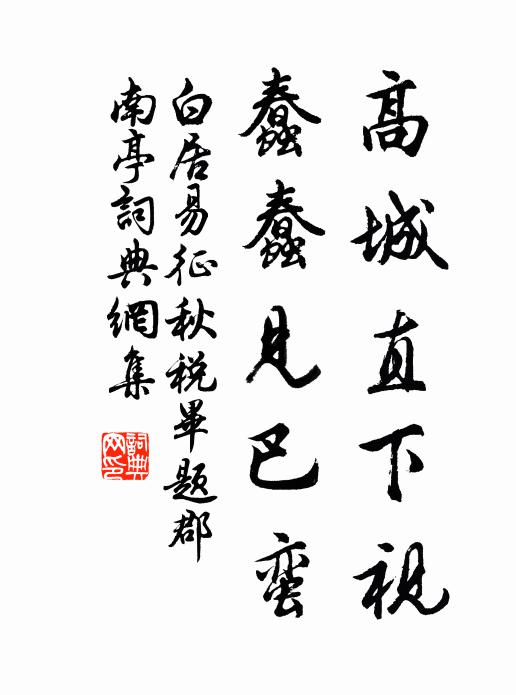 高城直下視
蠢蠢見巴蛮
白居易征秋税畢題郡
南亭詞典網集
詞典
网印